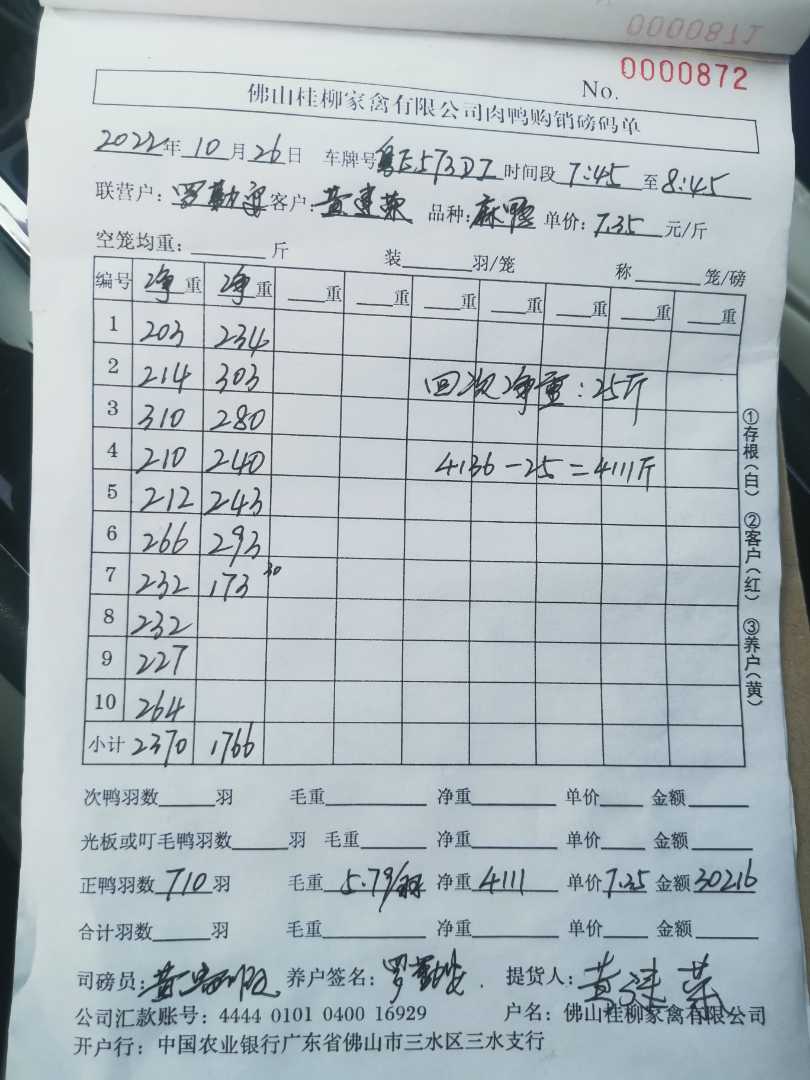 0000871
No. 0000872
佛山桂柳家禽有限公司肉鸭购销磅码单
2022年 10月 26日 车牌号 粤E573DJ 时间段 7:45 至 8:45
联营户: 罗勤 客户: 黄建荣 品种: 麻鸭 单价: 7.35 元/斤
空笼均重: 斤 装 羽/笼 称 笼/磅
编号 净重 净重 重 重 重 重 重 重 重
1 203 234
2 214 303 回次净重:25斤
3 310 280
4 210 240 4136-25=4111斤
5 212 243
6 266 293
7 232 173 30
8 232
9 227
10 264
小计 2370 1766
①存根(白) ②客户(红) ③养户(黄)
次鸭羽数 羽 毛重 净重 单价 金额
光板或叮毛鸭羽数 羽 毛重 净重 单价 金额
正鸭羽数 710 羽 毛重 5.79/羽 净重 4111 单价 7.35 金额 30216
合计羽数 羽 毛重 净重 单价 金额
司磅员: 黄 养户签名: 罗勤 提货人: 黄建荣
公司汇款账号: 4444 0101 0400 16929 户名: 佛山桂柳家禽有限公司
开户行: 中国农业银行广东省佛山市三水区三水支行